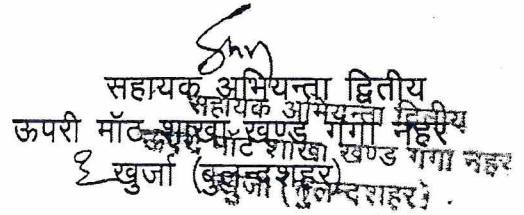 सहायक अभियन्ता द्वितीय
सहायक अभियन्ता द्वितीय
ऊपरी मॉट शाखा खण्ड गंगा नहर
मॉट शाखा खण्ड गंगा नहर
खुर्जा (बुलन्दशहर)
खुर्जा (बुलन्दशहर)